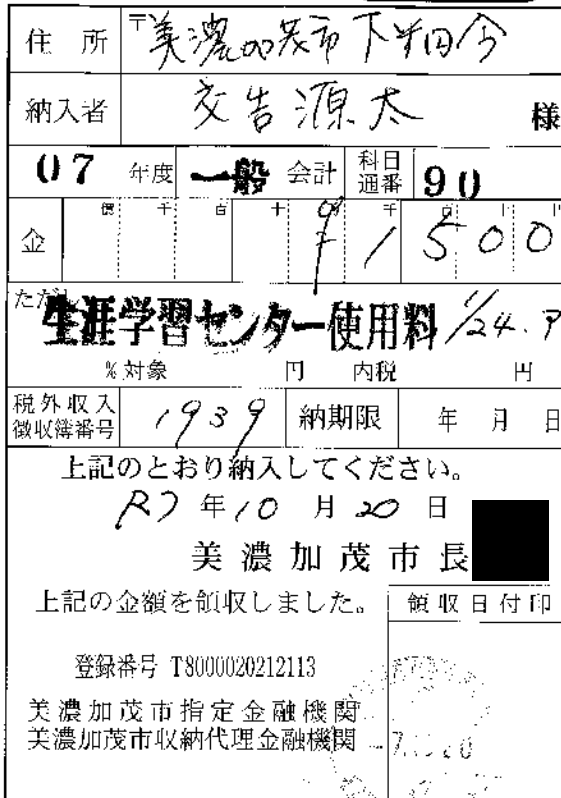 住所 〒美濃加茂市下米田今
納入者 交告源太 様
07 年度 一般 会計 科目通番 90
億 千 百 十 万 千 百 十 円
金 ¥ 1 5 0 0
ただし
生涯学習センター使用料 1/24.
%対象 円 内税 円
税外収入徴収簿番号 1939 納期限 年 月 日
上記のとおり納入してください。
R7年10月20日
美濃加茂市長
上記の金額を領収しました。 領収日付印
登録番号 T8000020212113
美濃加茂市指定金融機関
美濃加茂市収納代理金融機関